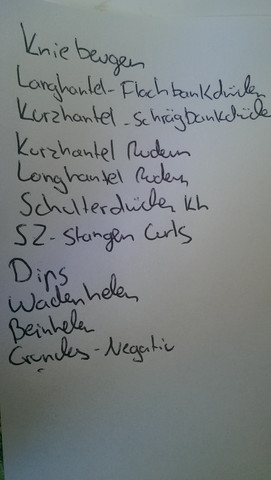 Kniebeugen
Langhantel-Flachbankdrücken
Kurzhantel-Schrägbankdrücke
Kurzhantel Rudern
Langhantel Rudern
Schulterdrücken KH
SZ-Stangen Curls
Dips
Wadenheben
Beinheben
Crunches-Negativ